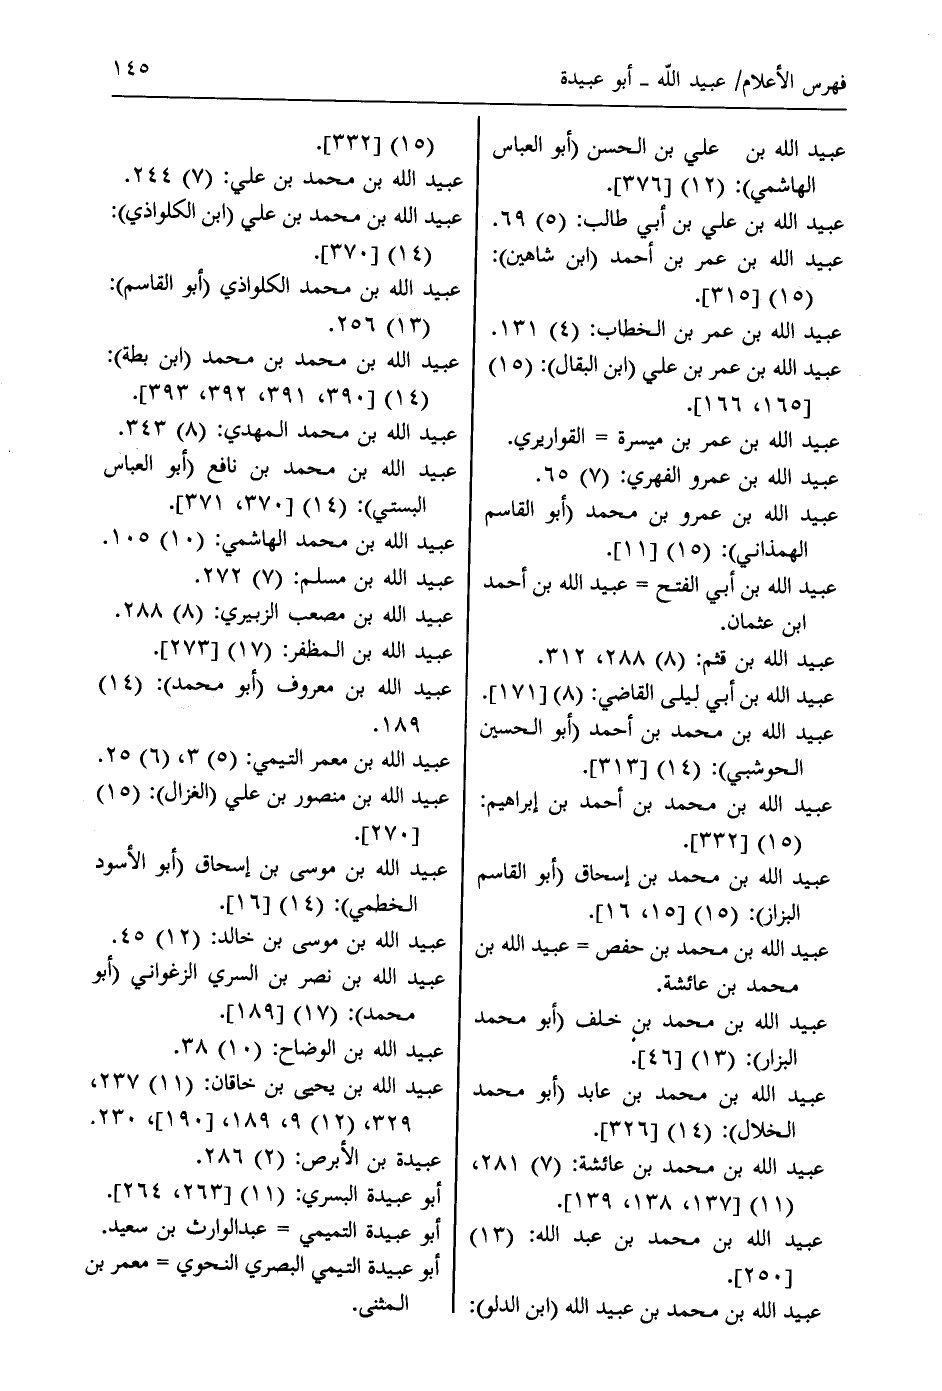 فهرس الأعلام/ عبيد الله ـ أبو عبيدة
١٤٥
عبيد الله بن علي بن الحسن (أبو العباس
الهاشمي): (١٢) [٣٧٦].
عبيد الله بن علي بن أبي طالب: (٥) ٦٩.
عبيد الله بن عمر بن أحمد (ابن شاهين):
(١٥) [٣١٥].
عبيد الله بن عمر بن الخطاب: (٤) ١٣١.
عبيد الله بن عمر بن علي (ابن البقال): (١٥)
[١٦٥، ١٦٦].
عبيد الله بن عمر بن ميسرة = القواريري.
عبيد الله بن عمرو الفهري: (٧) ٦٥.
عبيد الله بن عمرو بن محمد (أبو القاسم
الهمذاني): (١٥) [١١].
عبيد الله بن أبي الفتح = عبيد الله بن أحمد
ابن عثمان.
عبيد الله بن قثم: (٨) ٢٨٨، ٣١٢.
عبيد الله بن أبي ليلى القاضي: (٨) [١٧١].
عبيد الله بن محمد بن أحمد (أبو الحسين
الحوشبي): (١٤) [٣١٣].
عبيد الله بن محمد بن أحمد بن إبراهيم:
(١٥) [٣٣٢].
عبيد الله بن محمد بن إسحاق (أبو القاسم
البزاز): (١٥) [١٥، ١٦].
عبيد الله بن محمد بن حفص = عبيد الله بن
محمد بن عائشة.
عبيد الله بن محمد بن خلف (أبو محمد
البزار): (١٣) [٤٦].
عبيد الله بن محمد بن عابد (أبو محمد
الخلال): (١٤) [٣٢٦].
عبيد الله بن محمد بن عائشة: (٧) ٢٨١،
(١١) [١٣٧، ١٣٨، ١٣٩].
عبيد الله بن محمد بن عبد الله: (١٣)
[٢٥٠].
عبيد الله بن محمد بن عبيد الله (ابن الدلو):
(١٥) [٣٣٢].
عبيد الله بن محمد بن علي: (٧) ٢٤٤.
عبيد الله بن محمد بن علي (ابن الكلواذي):
(١٤) [٣٧٠].
عبيد الله بن محمد الكلواذي (أبو القاسم):
(١٣) ٢٥٦.
عبيد الله بن محمد بن محمد (ابن بطة):
(١٤) [٣٩٠، ٣٩١، ٣٩٢، ٣٩٣].
عبيد الله بن محمد المهدي: (٨) ٣٤٣.
عبيد الله بن محمد بن نافع (أبو العباس
البستي): (١٤) [٣٧٠، ٣٧١].
عبيد الله بن محمد الهاشمي: (١٠) ١٠٥.
عبيد الله بن مسلم: (٧) ٢٧٢.
عبيد الله بن مصعب الزبيري: (٨) ٢٨٨.
عبيد الله بن المظفر: (١٧) [٢٧٣].
عبيد الله بن معروف (أبو محمد): (١٤)
١٨٩.
عبيد الله بن معمر التيمي: (٥) ٣، (٦) ٢٥.
عبيد الله بن منصور بن علي (الغزال): (١٥)
[٢٧٠].
عبيد الله بن موسى بن إسحاق (أبو الأسود
الخطمي): (١٤) [١٦].
عبيد الله بن موسى بن خالد: (١٢) ٤٥.
عبيد الله بن نصر بن السري الزغواني (أبو
محمد): (١٧) [١٨٩].
عبيد الله بن الوضاح: (١٠) ٣٨.
عبيد الله بن يحيى بن خاقان: (١١) ٢٣٧،
٣٢٩، (١٢) ٩، ١٨٩، [١٩٠]، ٢٣٠.
عبيدة بن الأبرص: (٢) ٢٨٦.
أبو عبيدة البسري: (١١) [٢٦٣، ٢٦٤].
أبو عبيدة التميمي = عبدالوارث بن سعيد.
أبو عبيدة التيمي البصري النحوي = معمر بن
المثنى.